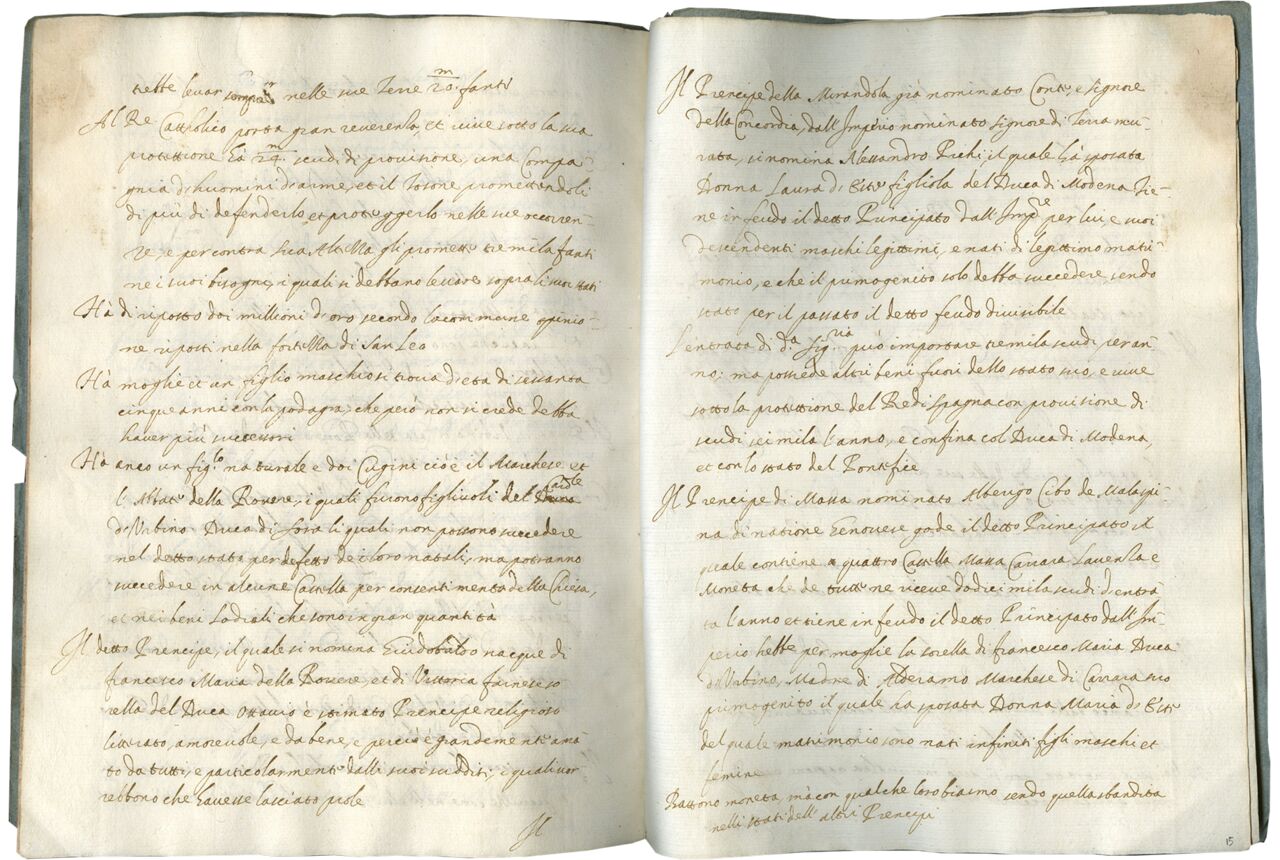 trebbe levar sempre nelle sue Terre 20.m fanti
Al Re Cattholico porta gran reverenza, et vive sotto la sua
protettione hà 24.m scudi di provisione, una Compa-
gnia d'huomini d'arme, et il Tosone, promettendoli
di più di defenderlo, et proteggerlo nelle sue occorren-
ze, e per contra sua Altezza gli promette tre mila fanti
ne i suoi bisogni, i quali si debbano levare sopra li suoi stati
Hà di riposto doi millioni d'oro secondo la commune opinio-
ne riposti nella fortezza di San Leo
Hà moglie et un figlio maschio si trova d'età di sessanta
cinque anni con la podagra, che però non si crede debba
haver più successori
Hà anco un fig.lo naturale e doi Cugini cioè il Marchese, et
l'Abbate della Rovere, i quali furono figliuoli del Card.le
d'Urbino Duca di Sora li quali non possono succedere
nel detto stato per defetto de i loro natali, ma potranno
succedere in alcune Castella per consentimento della Chiesa,
et ne i beni Lodiali che sono in gran quantità
Il detto Prencipe, il quale si nomina Guidobaldo nacque di
francesco Maria della Rovere, et di Vittoria farnese so-
rella del Duca Ottavio è stimato Prencipe religioso
litterato, amorevole, e da bene, e perciò è grandemente ama-
to da tutti, e particolarmente dalli suoi sudditi, i quali vor-
rebbono che havesse lasciato prole
Il
Il Prencipe della Mirandola già nominato Conte, e Signore
della Concordia, dall'Imperio nominato Signore di Terra mu-
rata, si nomina Alessandro Pichi il quale hà sposata
Donna Laura d'Este figliola del Duca di Modena Tie-
ne in feudo il detto Principato dall'Imp.re per lui, e suoi
descendenti maschi legittimi, e nati di legittimo matri-
monio, e che il primogenito solo debba succedere sendo
stato per il passato il detto feudo divisibile
L'entrata di d.a Sig.ria può importare tre mila scudi per an-
no; ma possiede altri beni fuori dello stato suo, e vive
sotto la protettione del Re di Spagna con provisione di
scudi sei mila l'anno, e confina col Duca di Modena,
et con lo stato del Pontefice
Il Prencipe di Massa nominato Alberigo Cibo de Malaspi-
na di natione Genovese gode il detto Principato il
quale contiene quattro Castella Massa Carrara Lavenza e
Moneta che de tutte ne riceve dodici mila scudi d'entra-
ta l'anno et tiene in feudo il detto Principato dall'Im-
perio hebbe per moglie la sorella di francesco Maria Duca
d'Urbino, Madre d'Alderamo Marchese di Carrara suo
primogenito il quale ha sposata Donna Maria d'Este
del quale matrimonio sono nati infiniti figli maschi et
femine
Battono moneta, mà con qualche loro biasmo sendo quella sbandita
nelli stati dell'altri Prencipi
15